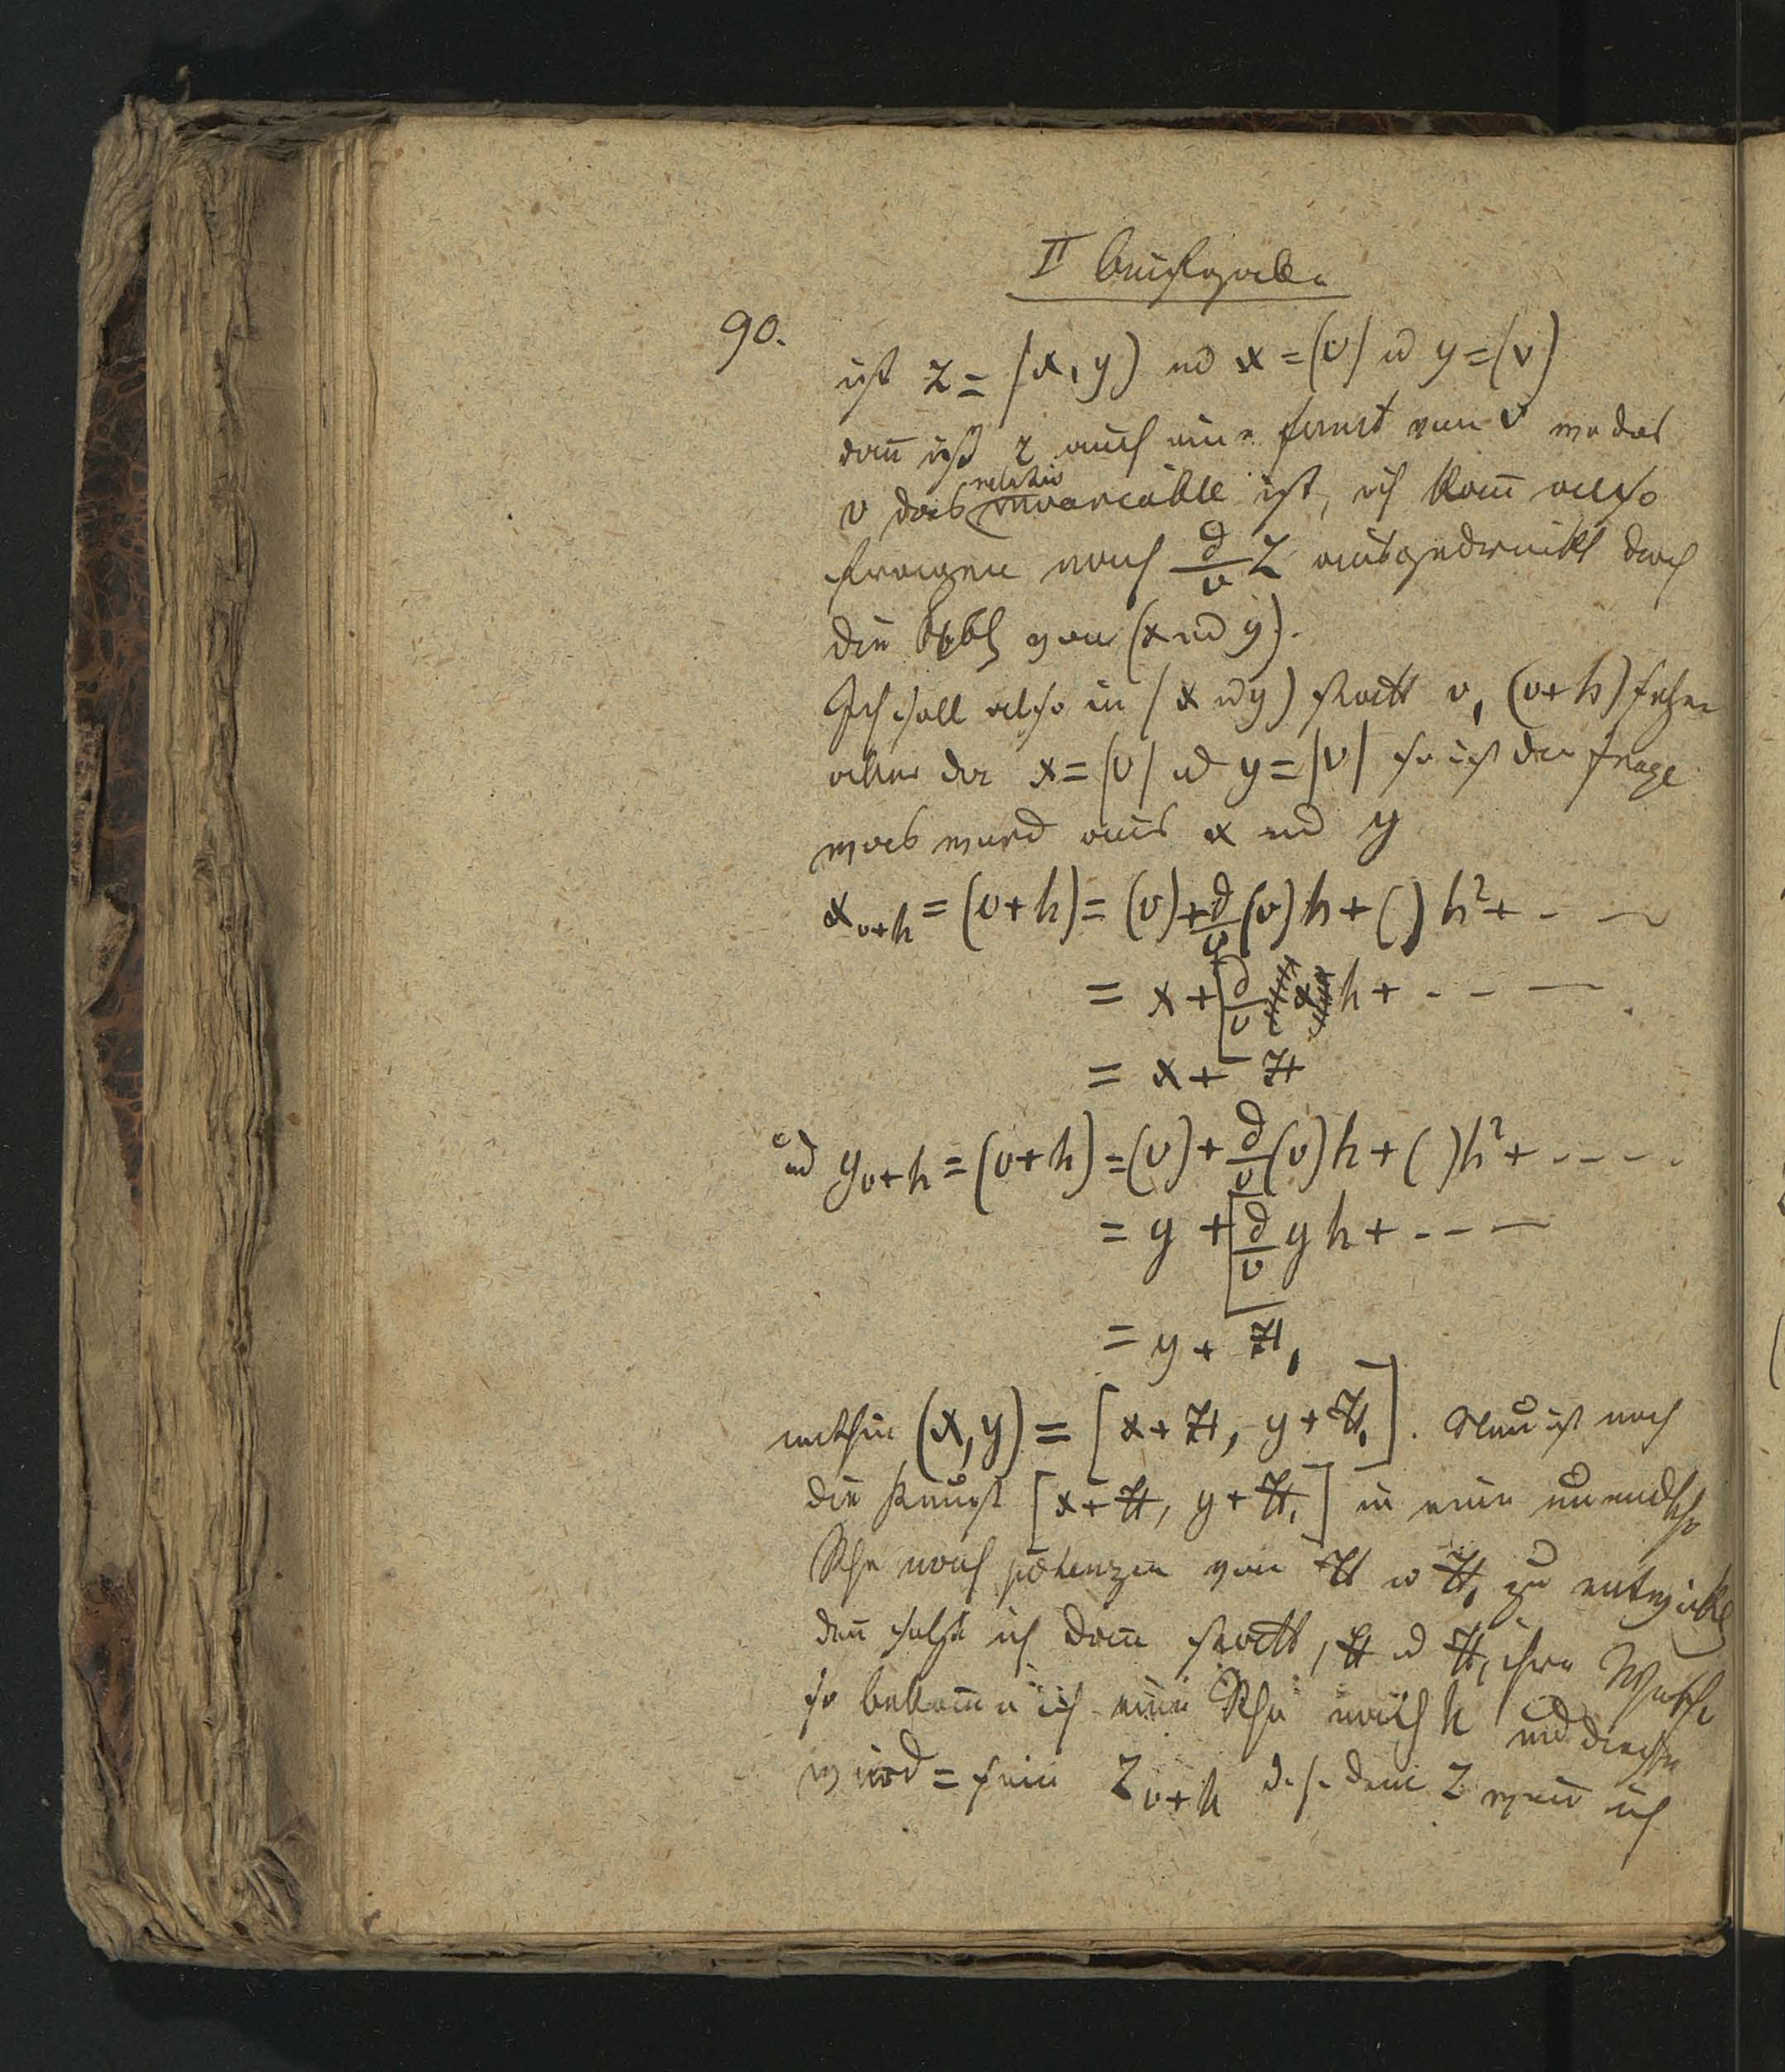 II Aufgabe
90.
ist z = (x, y) und x = (v) u y = (v)
dann ist z auch eine funct von v wo das
v das relativ variable ist, ich kann also
fragen nach d/v z ausgedrückt durch
die von (x und y).
Ich soll also in (x u y) statt v, (v+h) setzen
aber da x = (v) u y = (v) so ist die frage
was wird aus x und y
x_{v+h} = (v+h) = (v) + d/v (v) h + ( ) h² + - —
= x + d/v x h + - - —
= x + H
und y_{v+h} = (v+h) = (v) + d/v (v) h + ( ) h² + - - - -
= y + d/v y h + - - —
= y + H,
mithin (x, y) = [x + H, y + H,]. Nun ist noch
die [x + H, y + H,] in eine unendliche
Rhe nach potenzen von H u H, zu entwickeln
dann setze ich dann statt, H u H, ihre Werthe
so bekomme ich eine Rhe nach h und diese
wird = sein z_{v+h} d. h. dem z wenn ich